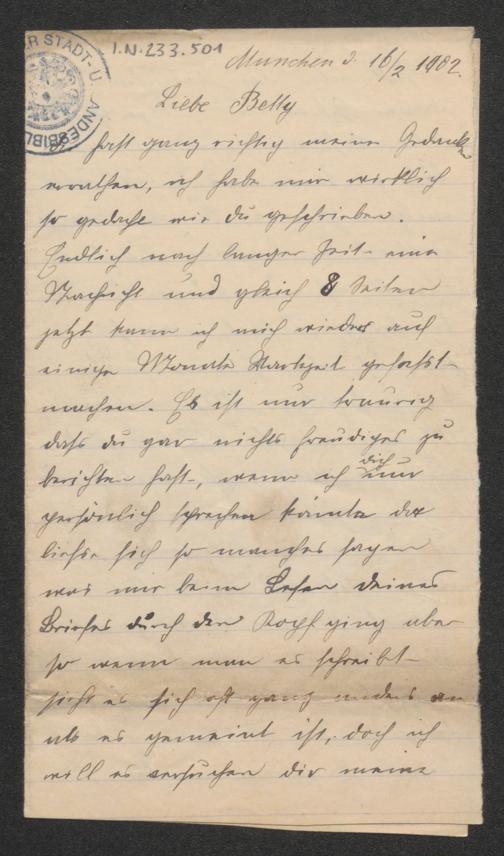 R STADT- U. ANDESBIBL
I.N.233.501
München d. 16/2 1902.
Liebe Betty
hast ganz richtig meine Gedanken
errathen, ich habe mir wirklich
so gedacht wie du geschrieben.
Endlich nach langer Zeit eine
Nachricht und gleich 8 Seiten
jetzt kann ich mich wieder auf
einige Monate Wartezeit gefasst
machen. Es ist nur traurig
dass du gar nichts freudiges zu
berichten hast, wenn ich dich nur
persönlich sprechen könnte da
liesse sich so manches sagen
was mir beim Lesen deines
Briefes durch den Kopf ging aber
so wenn man es schreibt
sieht es sich oft ganz anders an
als es gemeint ist, doch ich
will es versuchen dir meine